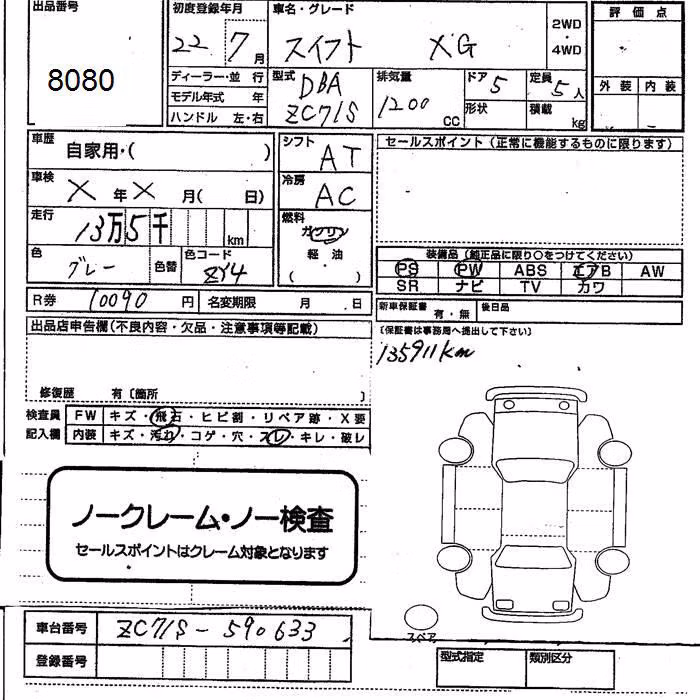 出品番号
8080
初度登録年月
22 7月
車名・グレード
スイフト XG
2WD
・
4WD
評価点
外装 内装
ディーラー・並行
モデル年式 年
ハンドル 左・右
型式
DBA
ZC71S
排気量
1200
CC
ドア 5
形状
定員 5人
積載 kg
車歴
自家用・( )
車検
X年X月( 日)
走行
13万5千 km
色
グレー
色替
色コード
ZY4
シフト
AT
冷房
AC
燃料
ガソリン
軽・油
( )
セールスポイント(正常に機能するものに限ります)
装備品(純正品に限り○をつけてください)
PS PW ABS エアB AW
SR ナビ TV カワ
R券 10090 円 名変期限 月 日
新車保証書 有・無 後日品
(保証書は事務局へ提出して下さい)
135911km
出品店申告欄(不良内容・欠品・注意事項等記載)
修復歴 有〔箇所 〕
検査員
記入欄
FW キズ・飛石・ヒビ割・リペア跡・X要
内装 キズ・汚れ・コゲ・穴・スレ・キレ・破レ
ノークレーム・ノー検査
セールスポイントはクレーム対象となります
スペア
車台番号 ZC71S-590633
登録番号
型式指定 類別区分